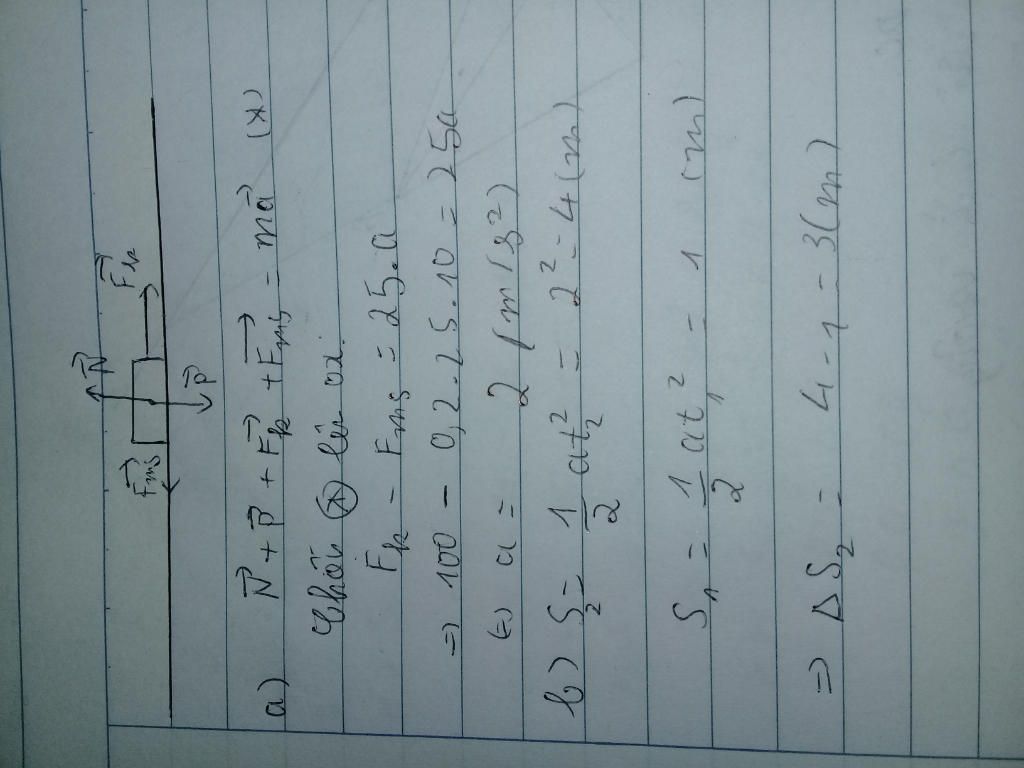 N⃗
F⃗ms F⃗k
P⃗
a) N⃗ + P⃗ + F⃗k + F⃗ms = ma⃗ (*)
Chiếu (*) lên ox:
Fk - Fms = 25.a
=> 100 - 0,2.25.10 = 25a
(=) a = 2 (m/s²)
b) S₂ = 1/2 at₂² = 2² = 4 (m)
S₁ = 1/2 at₁² = 1 (m)
=> ΔS₂ = 4 - 1 = 3 (m)